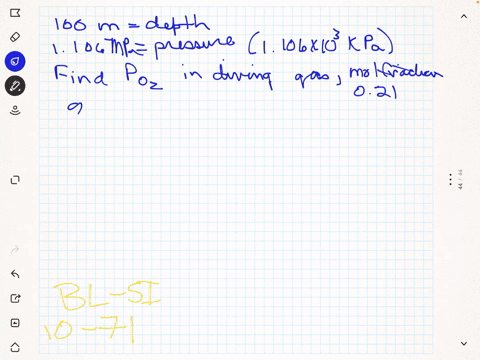 100 m = depth
1.106 MPa = pressure (1.106x10³ KPa)
Find P O₂ in diving gas, mol fraction
0.21
a
BL-SI
10-71